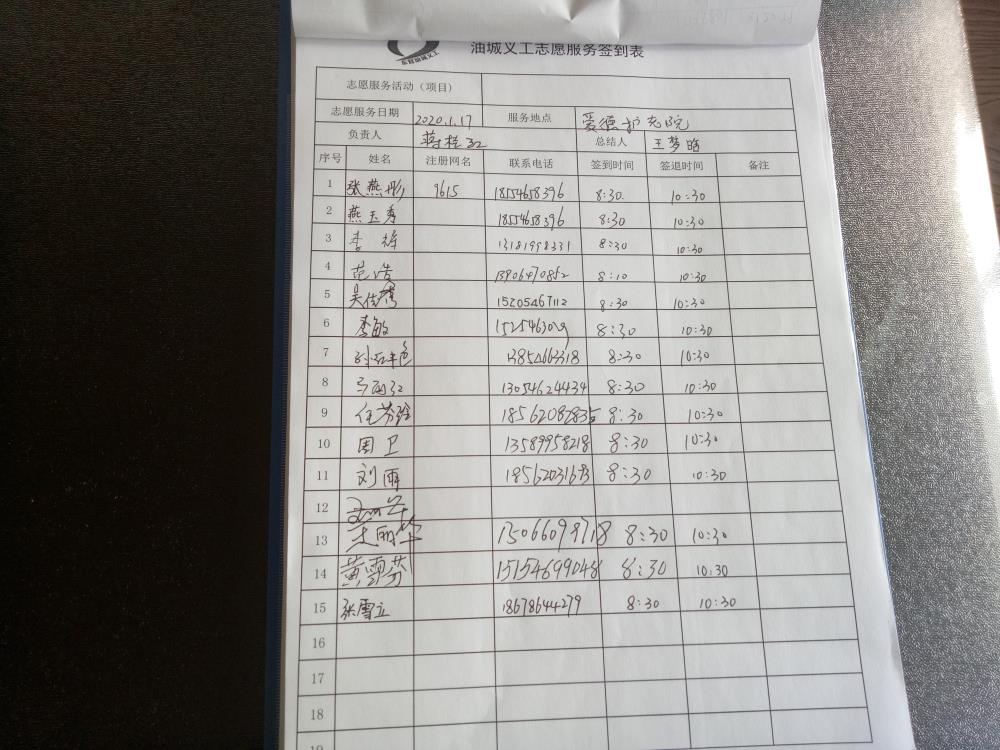 油城义工志愿服务签到表
志愿服务活动（项目）
志愿服务日期 2020.1.17 服务地点 爱德护老院
负责人 蒋桂 总结人 王梦晗
序号 姓名 注册网名 联系电话 签到时间 签退时间 备注
1 张燕彤 9615 18554658396 8:30. 10:30
2 燕玉秀 18554658396 8:30 10:30
3 李 13181998331 8:30 10:30
4 范浩 13906470852 8:10 10:30
5 吴佳 15205467112 8:30 10:30
6 李敏 8:30 10:30
7 13854663318 8:30 10:30
8 13054624434 8:30 10:30
9 任芬玲 8:30 10:30
10 周卫 13589958218 8:30 10:30
11 刘雨 8:30 10:30
12
13 王丽华 8:30 10:30
14 黄雪芬 15154699048 8:30 10:30
15 张雪立 18678644279 8:30 10:30
16
17
18